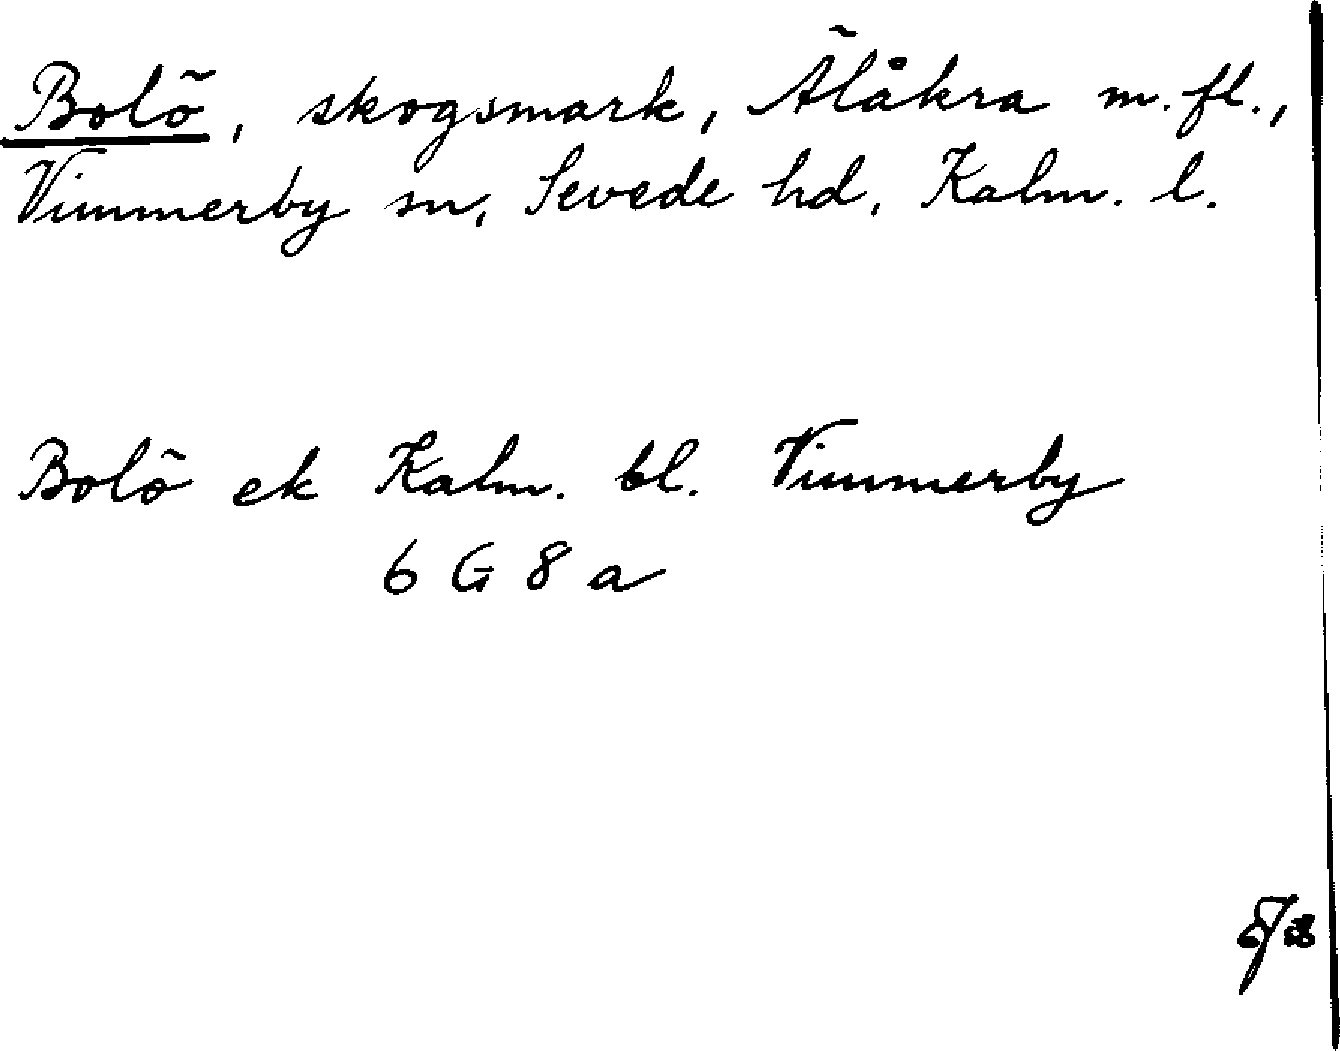 Bolö, skogsmark, Älåkra m.fl.,
Vimmerby sn, Sevede hd, Kalm. l.
Bolö ek Kalm. bl. Vimmerby
6 G 8 a